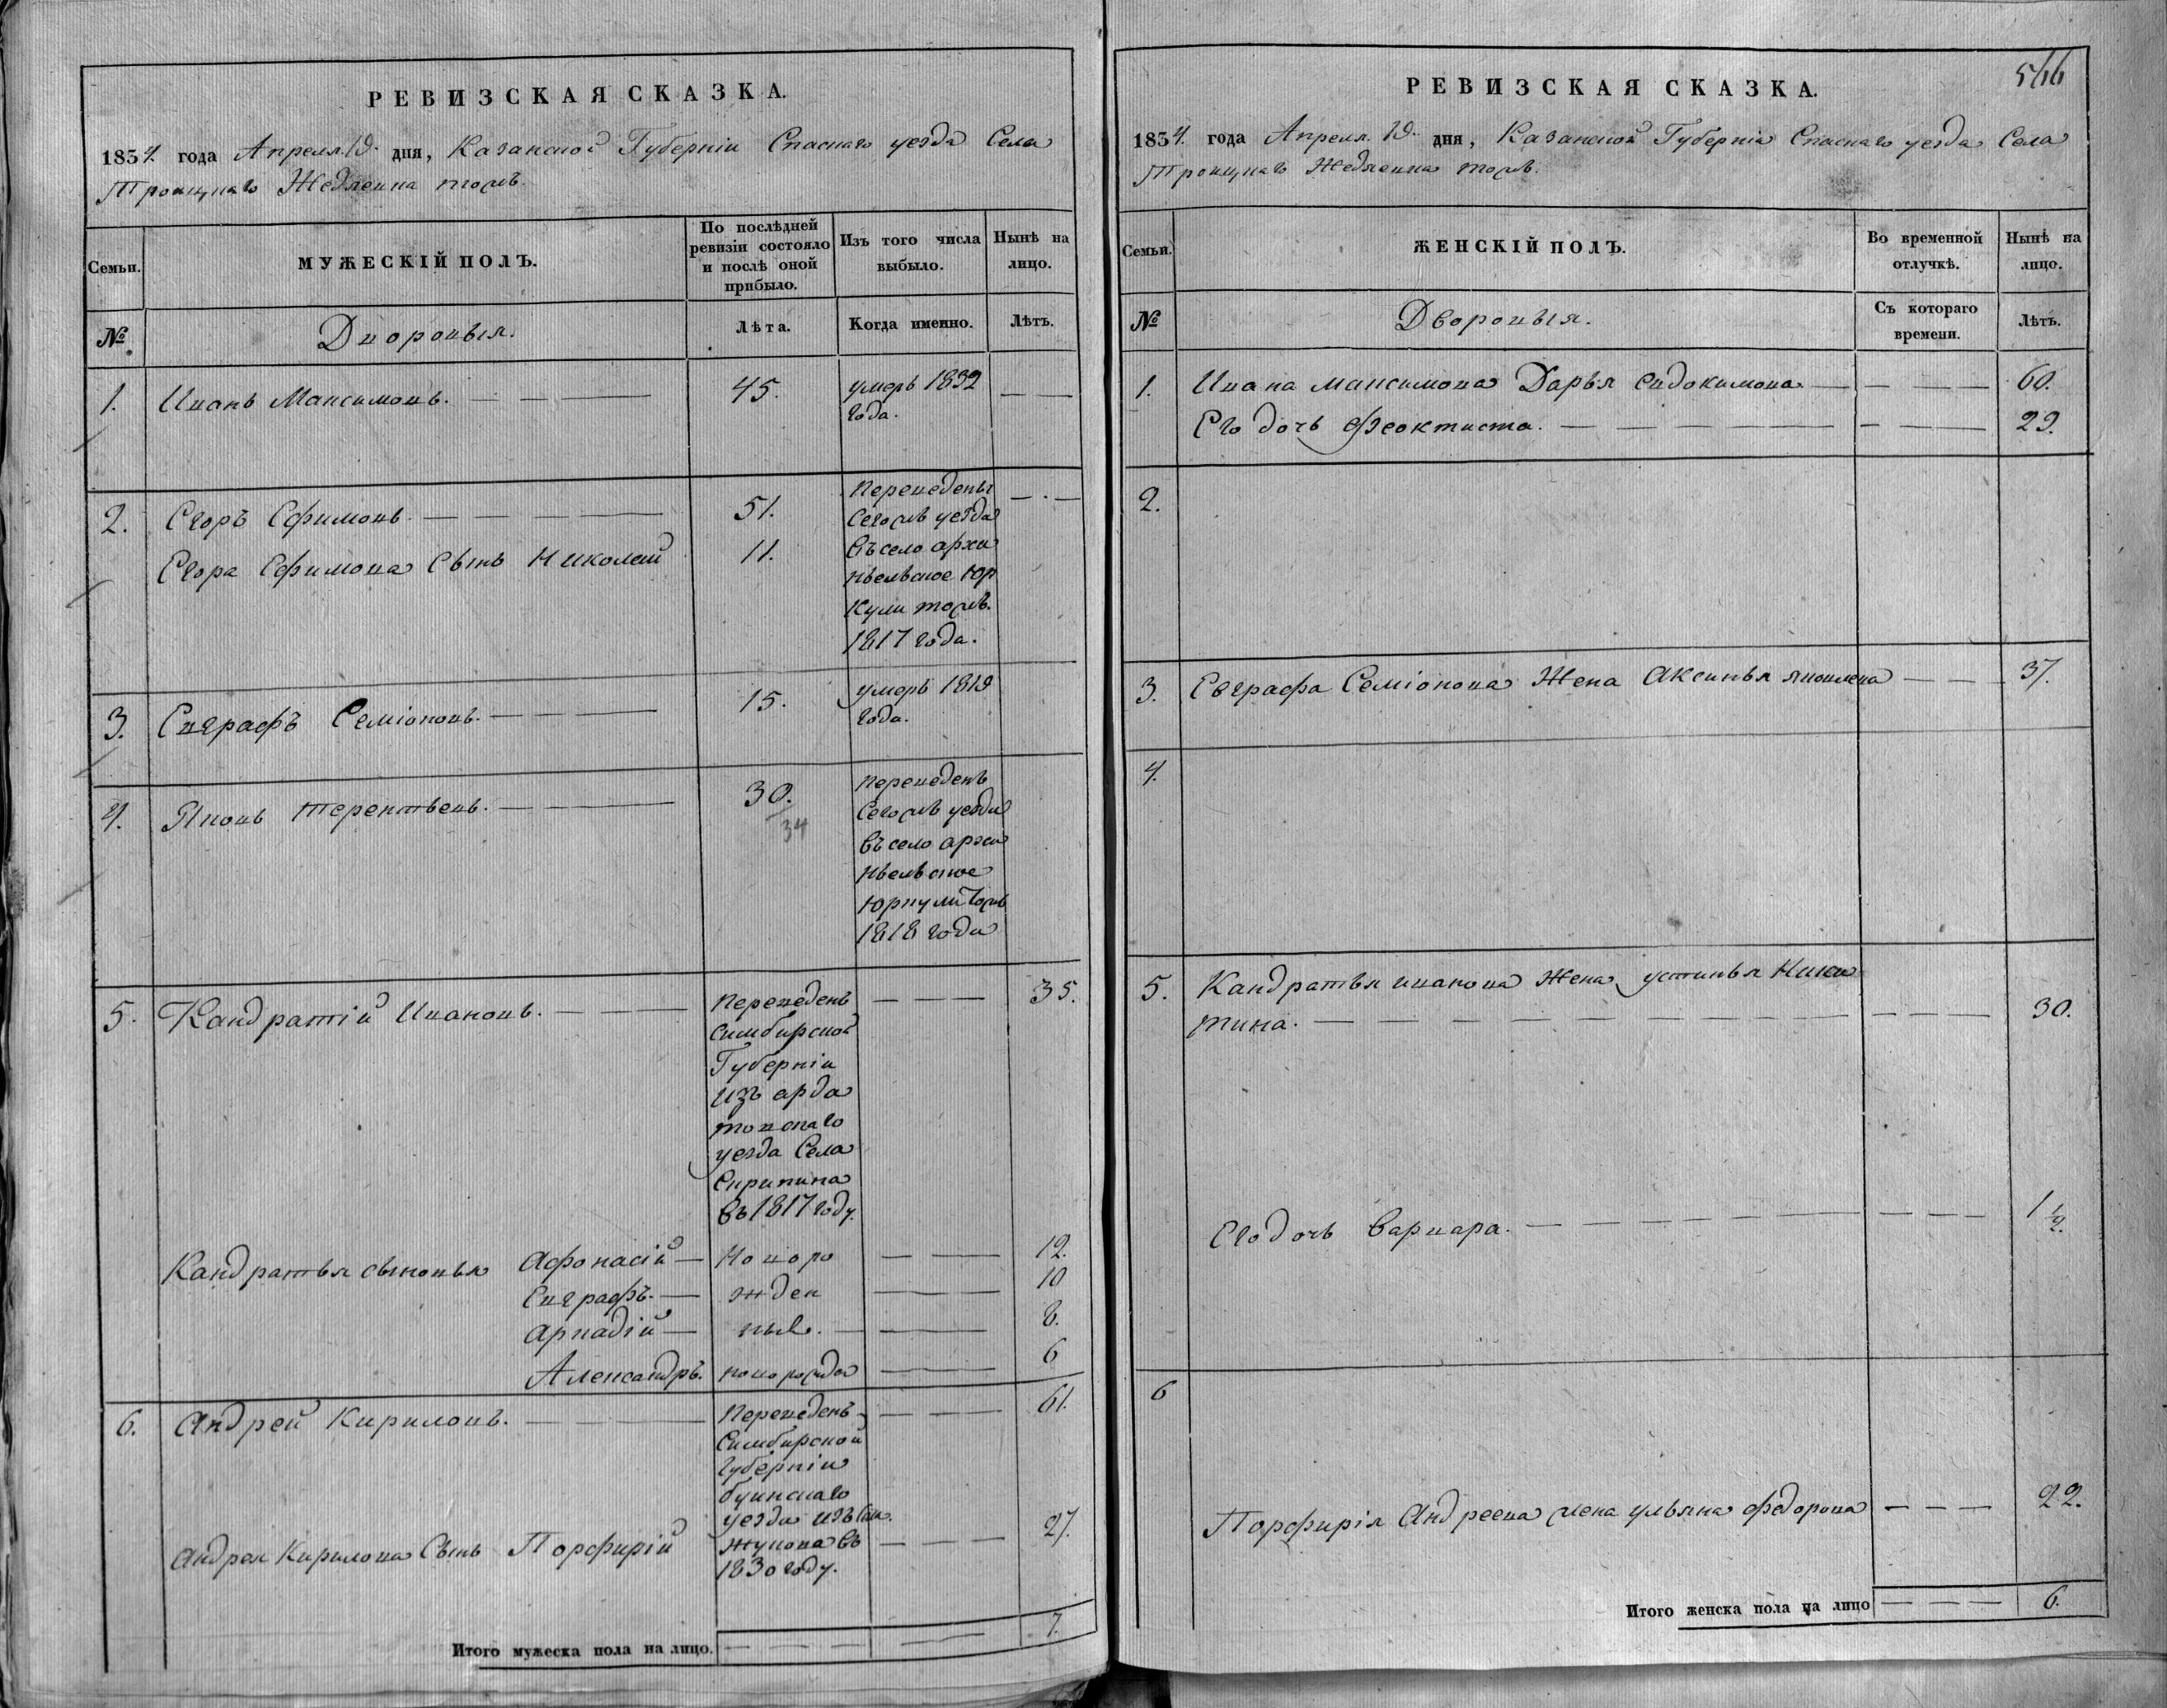 РЕВИЗСКАЯ СКАЗКА.
1834. года Апреля 19. дня, Казанской Губерніи Спаскаго уезда Села
Троицкаго Жедяевка тожъ.
Семьи.
МУЖЕСКІЙ ПОЛЪ.
По послѣдней
ревизіи состояло
и послѣ оной
прибыло.
Изъ того числа
выбыло.
Нынѣ на
лицо.
№
Дворовыя.
Лѣта.
Когда именно.
Лѣтъ.
1. Иванъ Максимовъ. 45. умеръ 1832
года.
2. Егоръ Ефимовъ 51. Переведены
Сегожъ уезда
Егора Ефимова Сынъ Николай 11. въ село арха
нгельское Юр
кули тожъ.
1817 года.
3. Евграфъ Семіоновъ. 15. умеръ 1819
года.
4. Яковъ терентьевъ. 30. переведенъ
34
Сегожъ уезда
въ село арха
нгельское
юркули тожъ
1818 года
5. Кандратій Ивановъ. Переведенъ 35.
симбирской
Губерніи
изъ арда
товскаго
уезда Села
Скрипина
въ 1817 году.
Кандратья сыновья Афонасій Новоро 12.
Евграфъ. жден 10
аркадій ные. 8.
Александръ. новорожда 6
6. Андрей Кириловъ. Переведенъ 61.
Симбирской
губерніи
буинскаго
уезда изъ
Андрея Кирилова Сынъ Порфирій въ 27.
1830 году.
Итого мужеска пола на лицо. 7.
566
РЕВИЗСКАЯ СКАЗКА.
1834. года Апреля 19. дня, Казанской Губерніи Спаскаго уезда Села
Троицкаго Жедяевка тожъ.
Семьи.
ЖЕНСКІЙ ПОЛЪ.
Во временной
отлучкѣ.
Нынѣ на
лицо.
№
Дворовыя.
Съ котораго
времени.
Лѣтъ.
1. Ивана максимова Дарья евдокимова 60.
Его дочь Феоктиста. 29.
2.
3. Евграфа Семіонова Жена Аксинья яковлева 37.
4.
5. Кандратья иванова Жена устинья Ники
тина. 30.
Его дочь варвара. 1 1/2.
6
Порфирія Андреева жена ульяна федорова 22.
Итого женска пола на лицо 6.